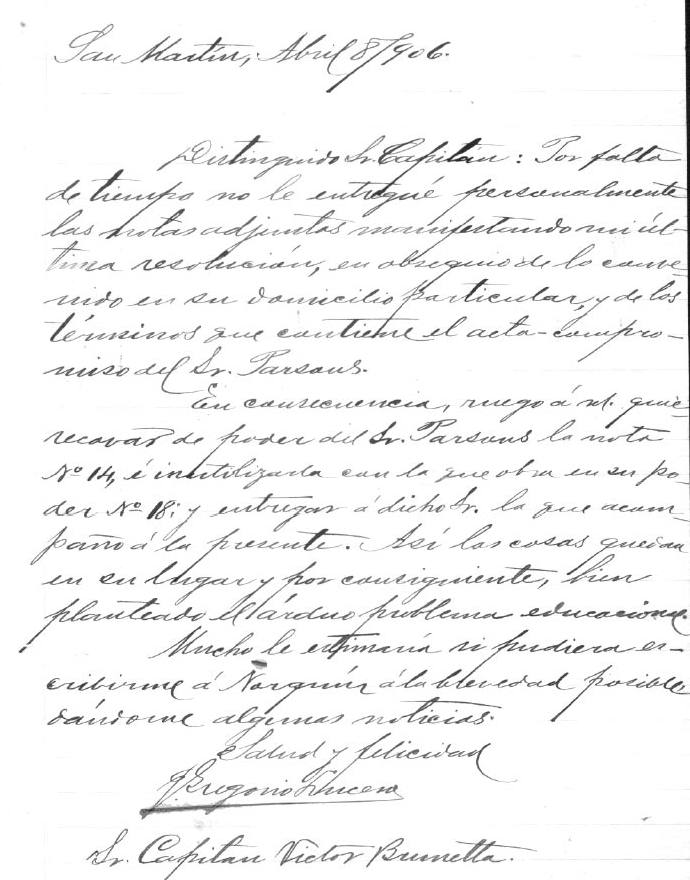 San Martín, Abril 8/906.
Distinguido Sr. Capitán: Por falta
de tiempo no le entregué personalmente
las notas adjuntas manifestando mi úl-
tima resolución, en obsequio de lo conve-
nido en su domicilio particular, y de los
términos que contiene el acta-compro-
miso del Sr. Parsons.
En consecuencia, ruego á Vd. quie
recavar de poder del Sr. Parsons la nota
Nº 14, é inutilizarla con la que obra en su po-
der Nº 18; y entregar á dicho Sr. la que acom-
paño á la presente. Así las cosas quedan
en su lugar y por consiguiente, bien
planteado el árduo problema educacional.
Mucho le estimaría si pudiera es-
cribirme á Norquín á la brevedad posible
dándome algunas noticias.
Salud y felicidad
Gregorio Lucero
Sr. Capitan Victor Brunetta.